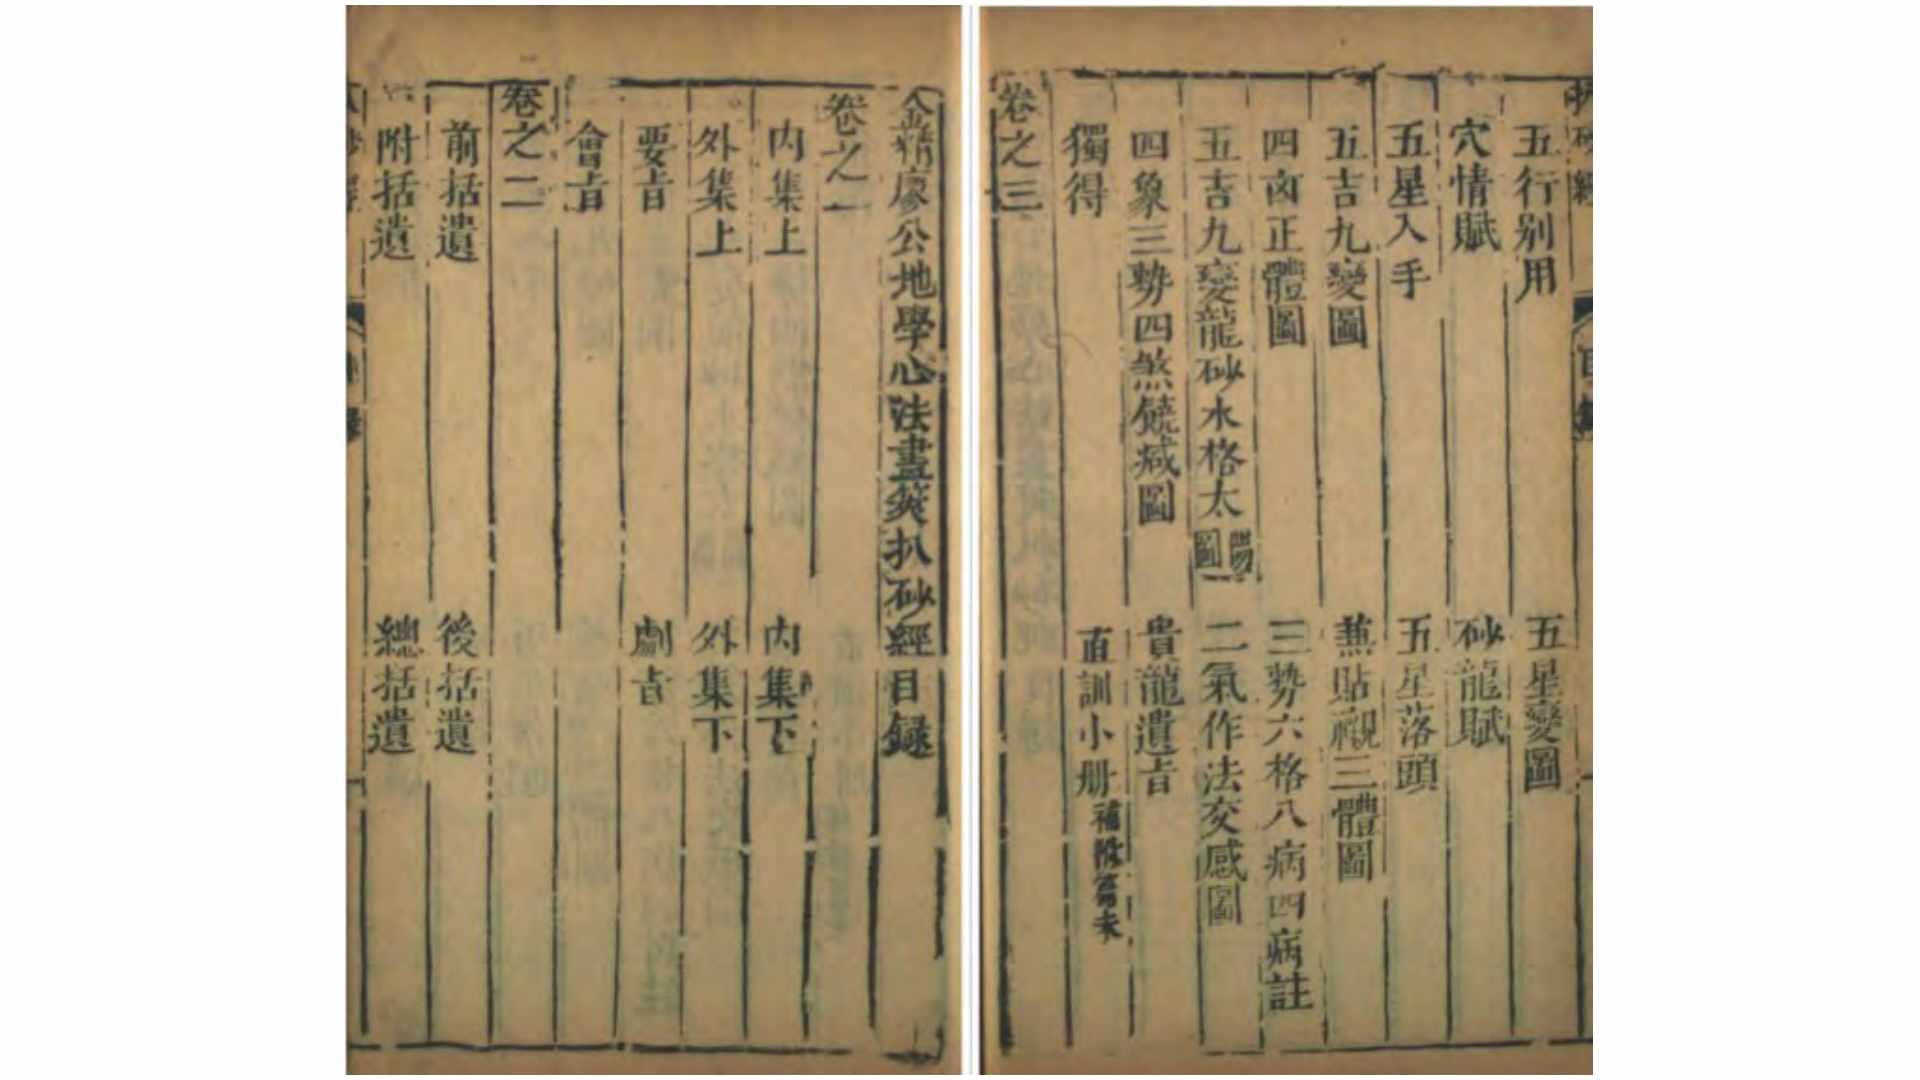 金精廖公地學心法畫筴扒砂經目録
卷之一
内集上 内集下
外集上 外集下
要旨 劇旨
會旨
卷之二
前括遺 後括遺
附括遺 總括遺
五行别用 五星變圖
穴情賦 砂龍賦
五星入手 五星落頭
五吉九變圖 兼貼襯三體圖
四凶正體圖 三勢六格八病四病註
五吉九變龍砂水格太陽圖 二氣作法交感圖
四象三勢四煞饒减圖 貴龍遺旨
獨得 直訓小册補附篇末
卷之三